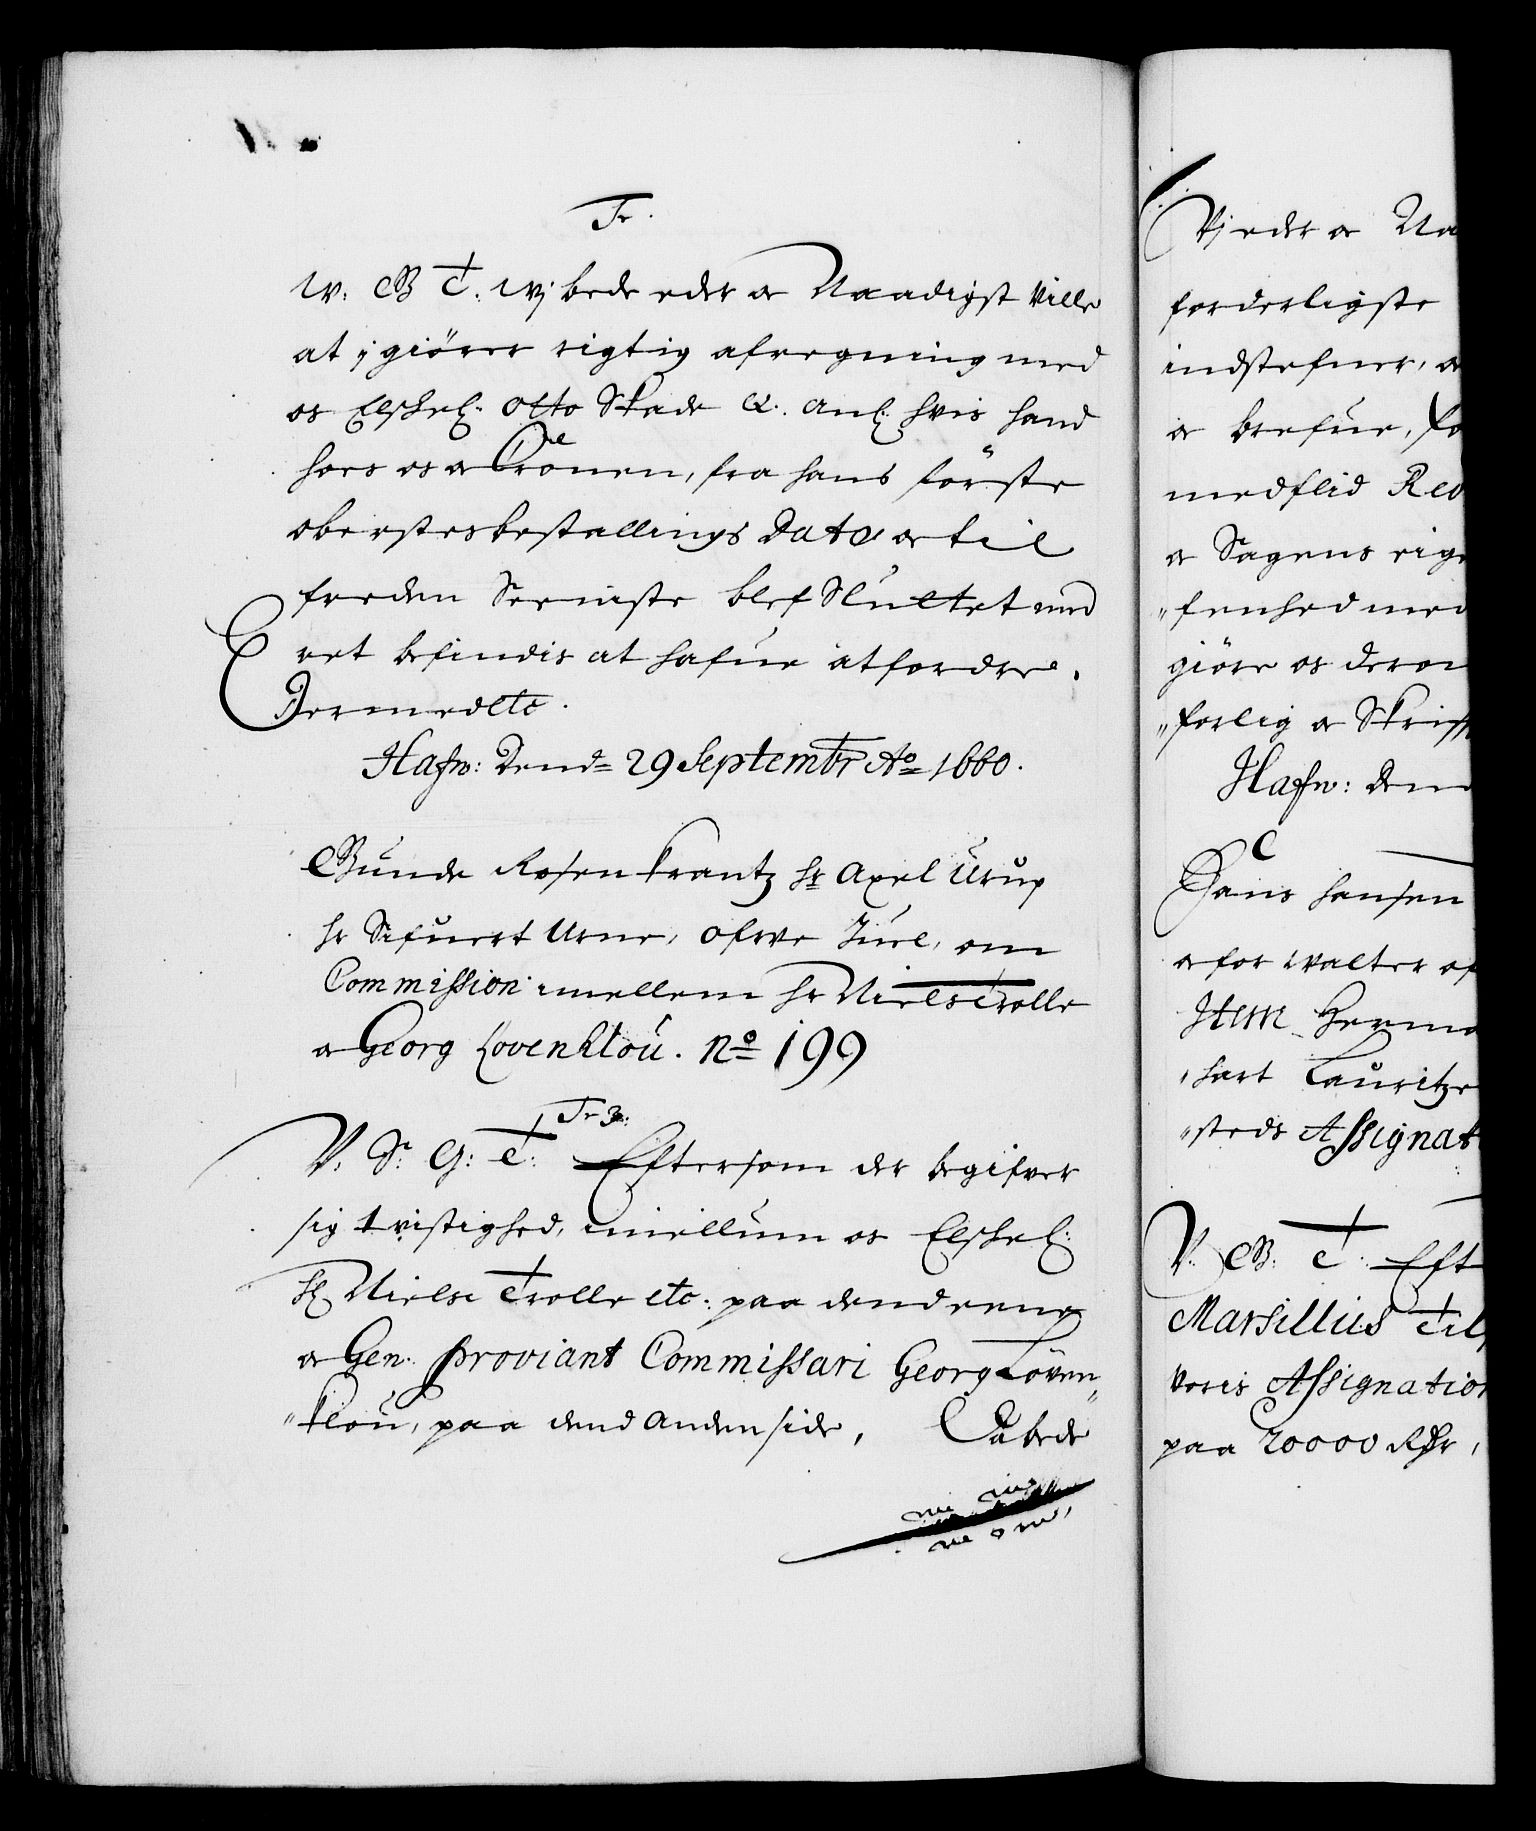 Fr.
W: G T. Wj bede eder oc Naadigst Ville
at j giörer rigtig afregning med
os Elskel: Otto Skade &. anl: hvis hand
hoes os oc Cronen, fra hans förste
oberstesbestallings Dato oc til
freden Seeniste blef Sluttet med
ret befindis at hafue at fordre.
Dermed etc.
Hafn: Dend 29 Septembr Ao 1660.
Gunde Rosenkrantz hr Axel Urup
hr Sifuert Urne, ofwe Juel, om
Commission imellem hr Niels Trolle
oc Georg Lövenklou. No 199
Fr 3:
V. S: G: T: Eftersom der begifver
sig tvistighed, imellum os Elskel:
hr Nielse Trolle etc: paa dend eene
oc Gen. Proviant Commissari Georg Löven
klou, paa dend anden side, Da bede
Vj eder oc Na
forderligste
indstefner, oc
oc brefue, fo
medflid Rev
oc Sagens eige
fenhed med
giöre os derom
forlig oc Skrift
Hafn: den
Hans hansen
oc for Walter of
Item Herma
hart Lauritze
steds Assignat
V. G: T: Eft
Marsillius Til
voris Assignation
paa 20000 Rdr,